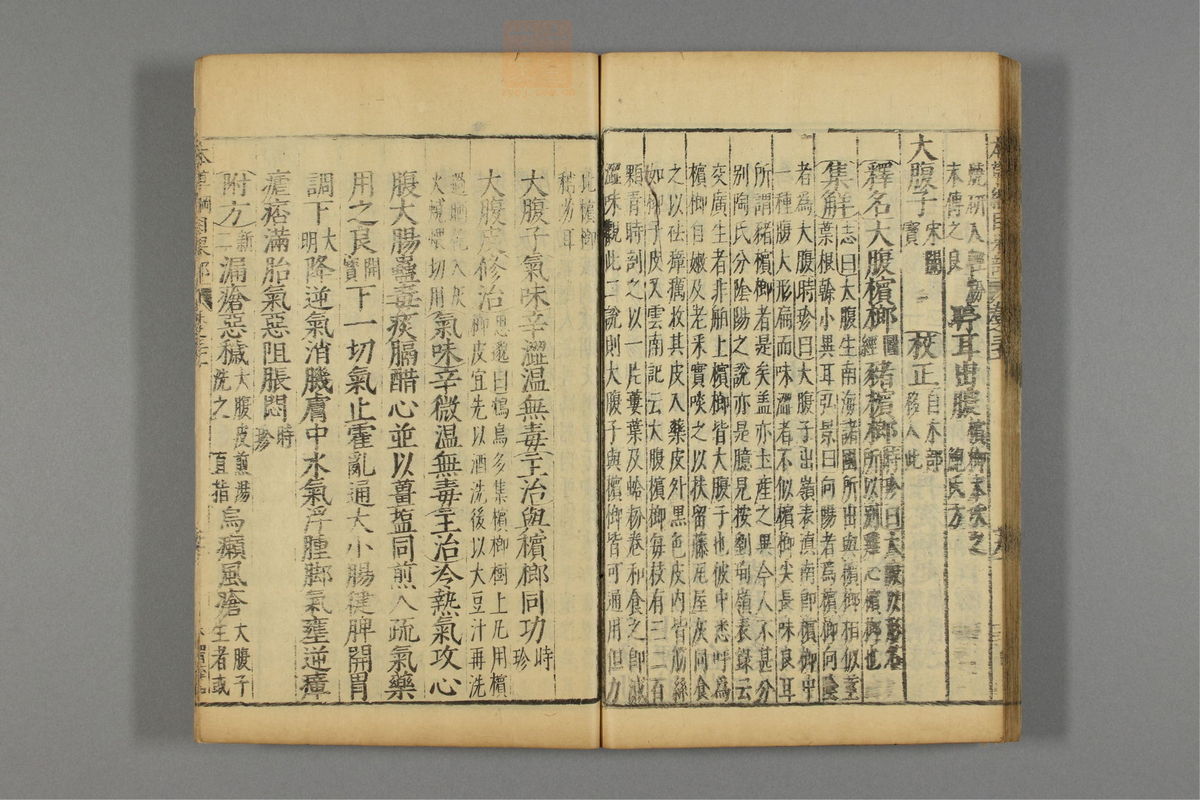 燒研入輕粉 聤耳出膿 檳榔末吹之
末傅之良 鮑氏方
大腹子 宋開寶 校正 自本部移入此
釋名大腹檳榔 圖經 豬檳榔 時珍曰大腹以形名
所以別雞心檳榔也
集解 志曰大腹生南海諸國所出與檳榔相似莖
葉根榦小異耳弘景曰向陽者為檳榔向陰
者為大腹時珍曰大腹子出嶺表滇南即檳榔中
一種腹大形扁而味澀者不似檳榔尖長味良耳
所謂豬檳榔者是矣蓋亦土産之異今人不甚分
別陶氏分陰陽之說亦是臆見按劉恂嶺表錄云
交廣生者非舶上檳榔皆大腹子也彼中悉呼為
檳榔自嫩及老采實啖之以扶留藤瓦屋灰同食
之以祛瘴癘收其皮入藥皮外黑色皮內皆筋絲
如椰子皮又雲南記云大腹檳榔每枝有三二百
顆青時剖之以一片蔞葉及蛤粉卷和食之即減
澀味觀此二說則大腹子與檳榔皆可通用但力
比檳榔
稍劣耳
大腹子氣味辛澀溫無毒主治與檳榔同功 時珍
大腹皮修治 思邈曰鴆鳥多集檳榔樹上凡用檳
榔皮宜先以酒洗後以大豆汁再洗
過晒乾入灰
火燒煨切用 氣味辛微溫無毒主治冷熱氣攻心
腹大腸蠱毒痰膈醋心並以薑鹽同煎入疏氣藥
用之良 開寶 下一切氣止霍亂通大小腸健脾開胃
調下 大明 降逆氣消肌膚中水氣浮腫脚氣壅逆瘴
瘧痞滿胎氣惡阻脹悶 時珍
附方 新二 漏瘡惡穢 大腹皮煎湯洗之 直指 烏癩風瘡 大腹子
生者或